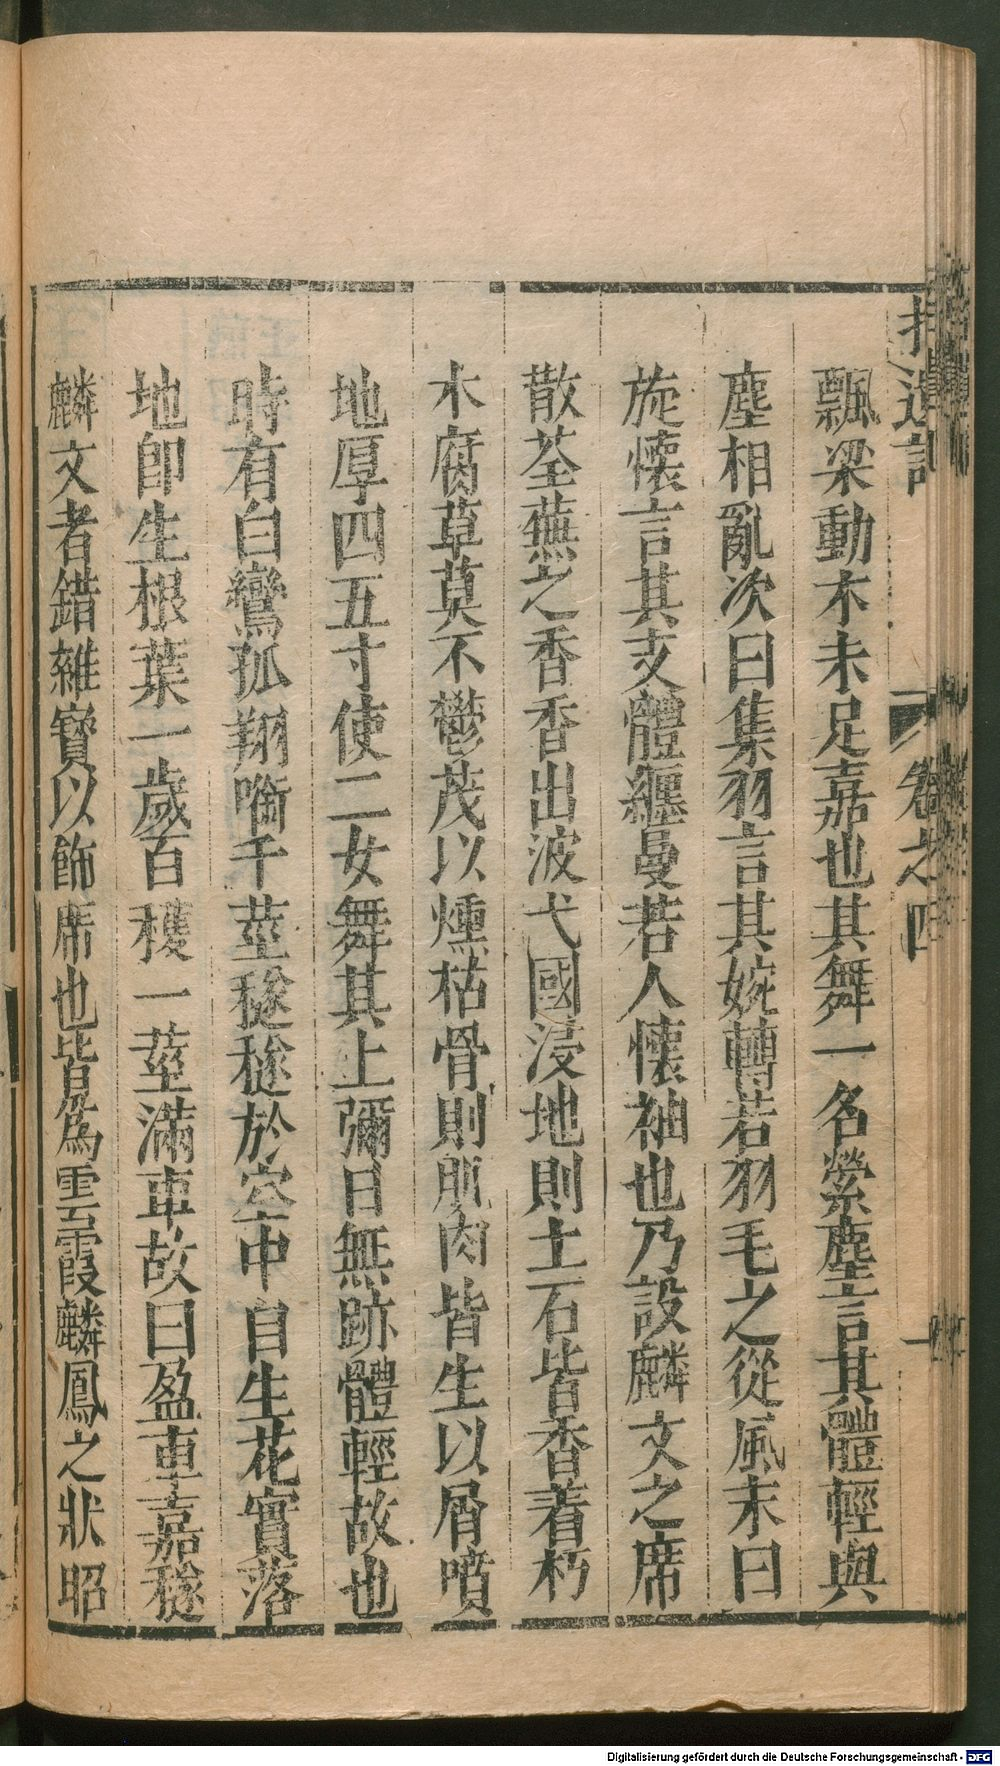 拾遺記
卷之四
一
飄梁動木未足嘉也其舞一名縈塵言其體輕與
塵相亂次曰集羽言其婉轉若羽毛之從風末曰
旋懷言其支體纏曼若人懷袖也乃設麟文之席
散荃蕪之香香出波弋國浸地則土石皆香着朽
木腐草莫不鬱茂以燻枯骨則肌肉皆生以屑噴
地厚四五寸使二女舞其上彌日無跡體輕故也
時有白鸞孤翔噣千莖穟穟於空中自生花實落
地即生根葉一歲百穫一莖滿車故曰盈車嘉穟
麟文者錯雜寶以飾席也皆為雲霞麟鳳之狀昭
Digitalisierung gefördert durch die Deutsche Forschungsgemeinschaft - DFG